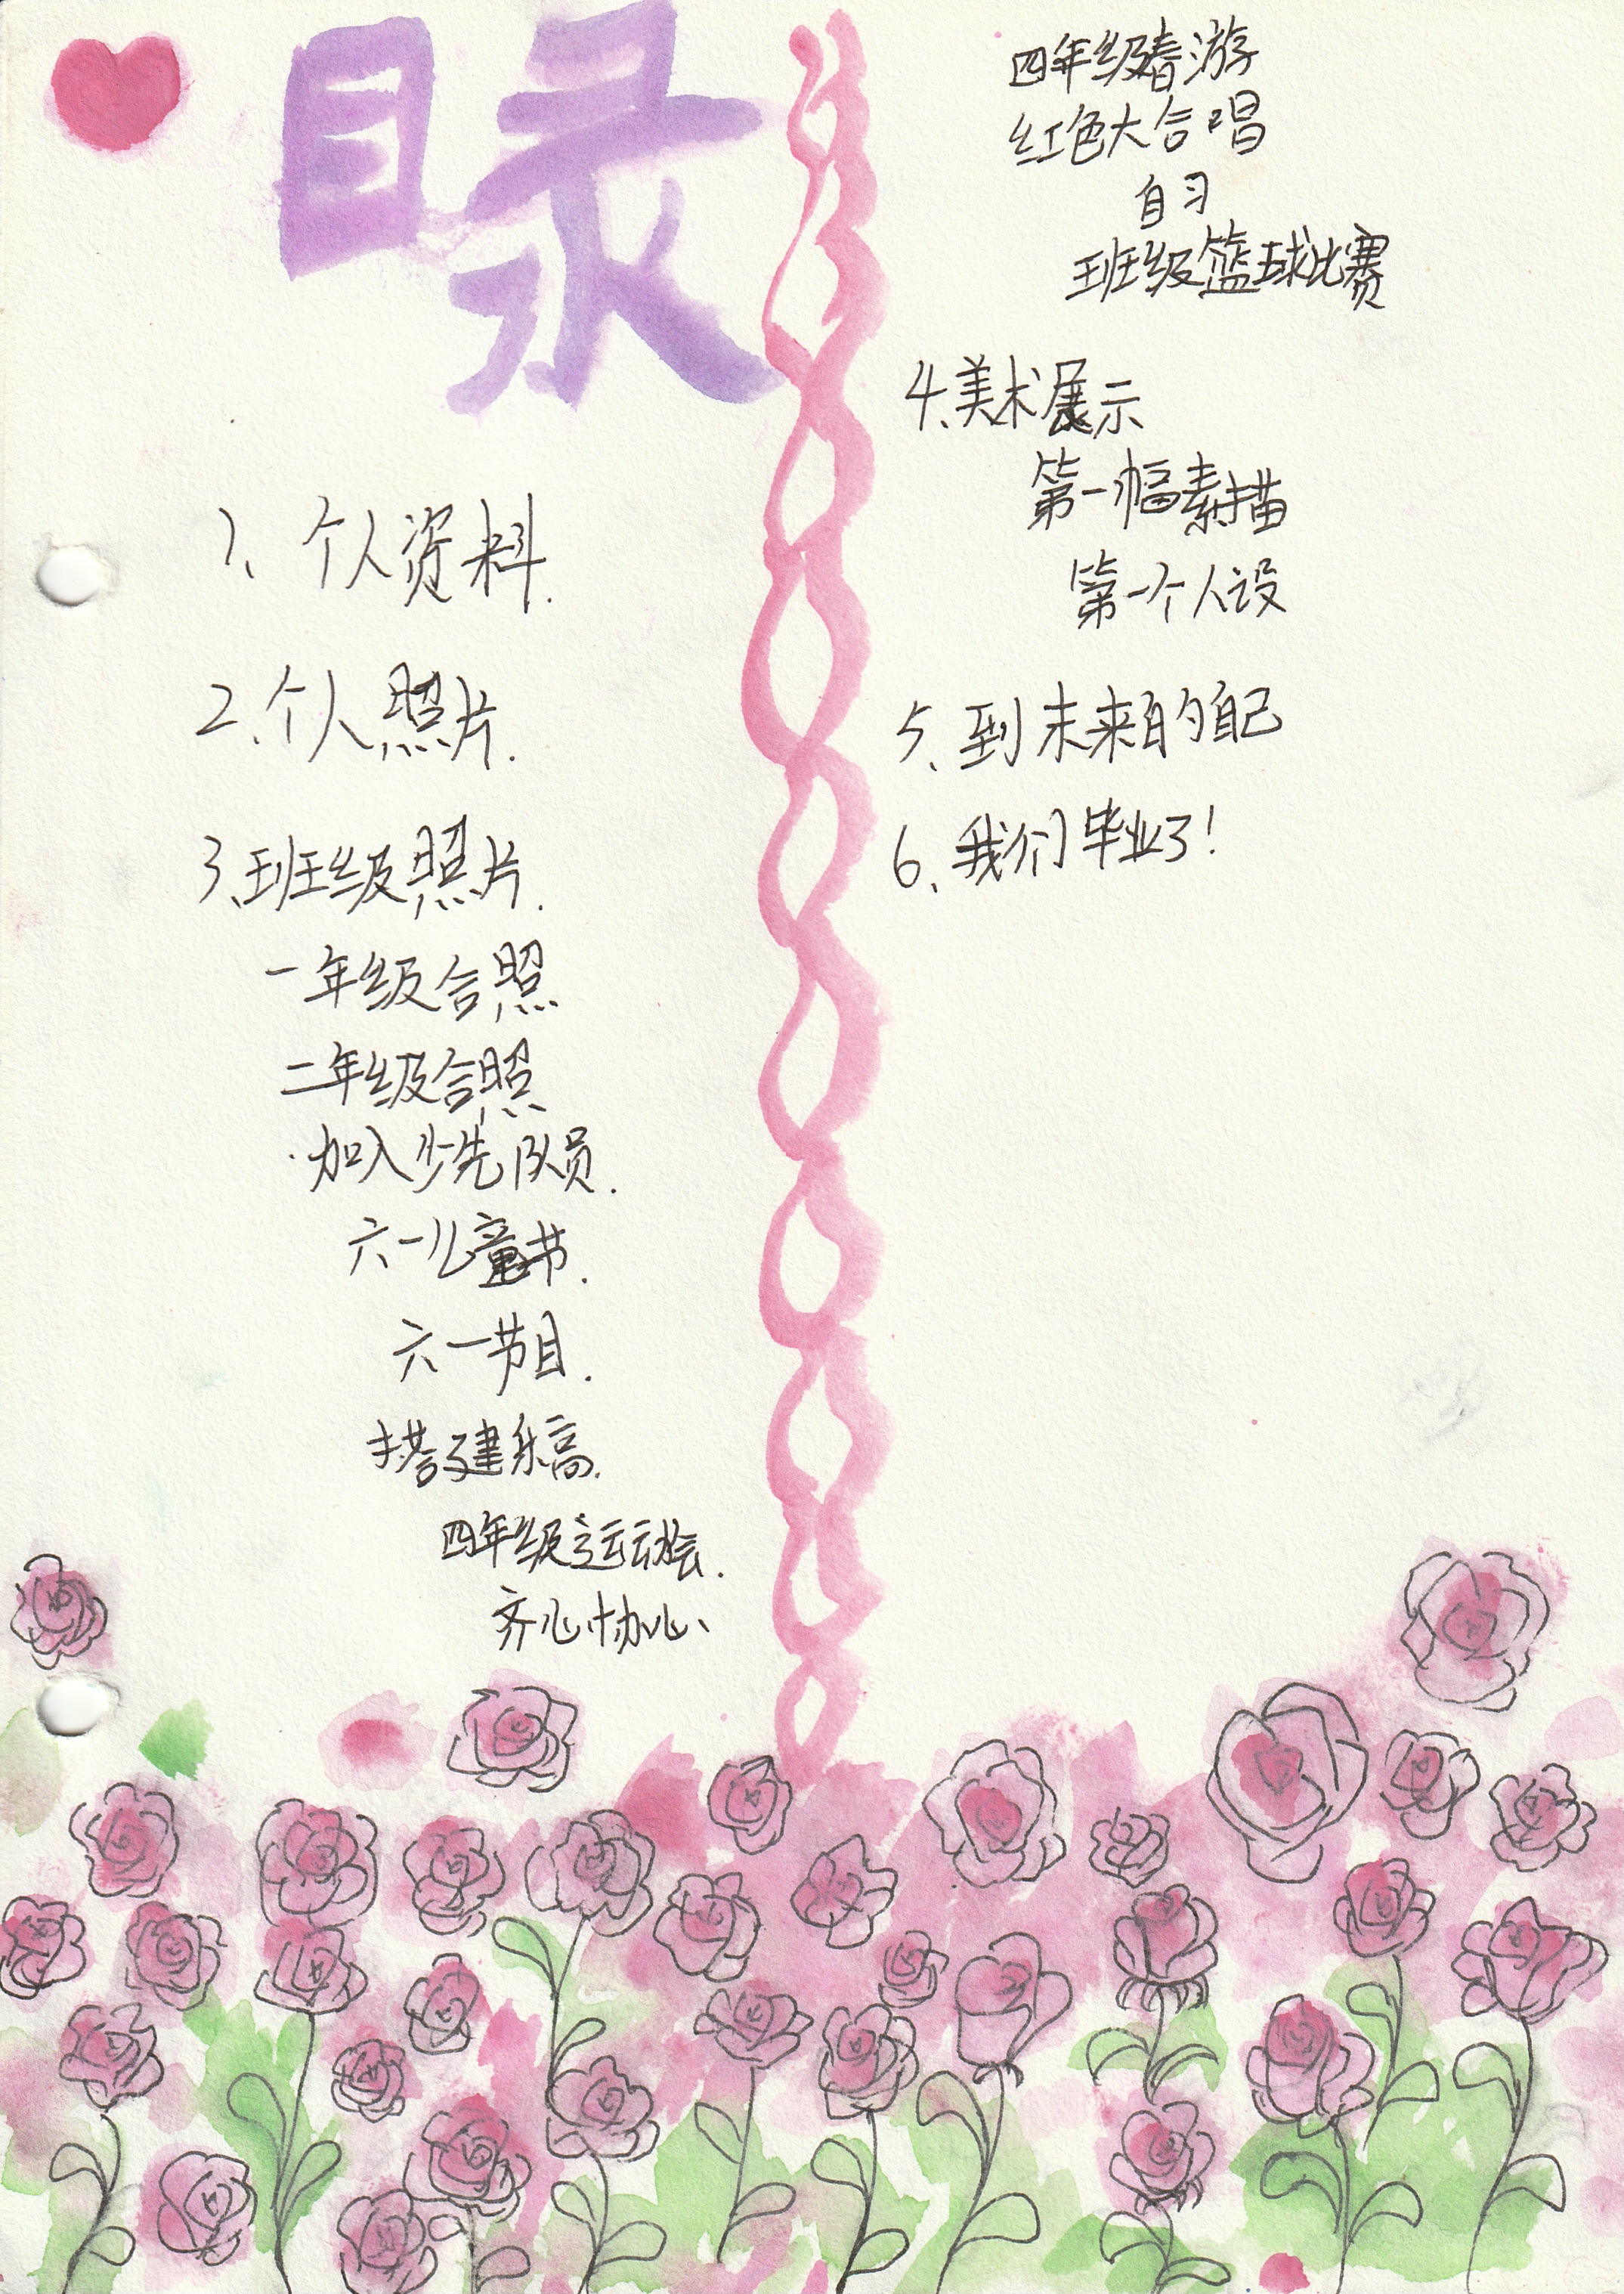 目录
1、个人资料.
2、个人照片.
3、班级照片.
一年级合照
二年级合照
·加入少先队员.
六一儿童节.
六一节目.
搭建乐高.
四年级运动会.
齐心协心、
四年级春游
红色大合唱
自习
班级篮球比赛
4、美术展示
第一幅素描
第一个人设
5、到未来的自己
6、我们毕业了!